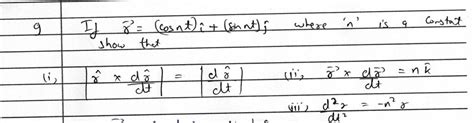 9 If r⃗ = (cosnt)î + (sinnt)ĵ where 'n' is a constat
show that
(i, | r̂ × dr̂/dt | = | dr̂/dt | (ii, r⃗ × dr⃗/dt = n k̄
(iii, d²r/dt² = -n²r